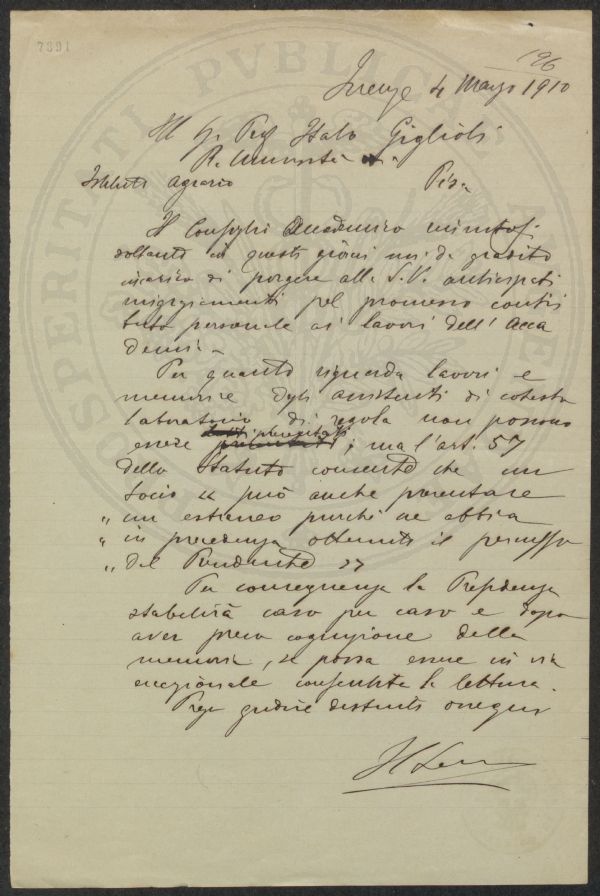 7391
196
Firenze 4 Marzo 1910
Ill Sig. Prof Italo Giglioli
R. Università
Istituto Agrario Pisa
Il Consiglio Accademico
soltanto in questi giorni mi dà gradito
incarico di porgere alla S.V. anticipati
ringraziamenti pel promesso contri
buto personale ai lavori dell' Acca
demia
Per quanto riguarda lavori e
memorie degli assistenti di cotesto
laboratorio di regola non possono
essere ; ma l'art. 57
dello Statuto consente che un
Socio " può anche presentare
" un estraneo purché ne abbia
" in precedenza ottenuto il permesso
" del Presidente "
Per conseguenza la Presidenza
stabilirà caso per caso e dopo
aver presa cognizione della
memoria, se possa essere in via
eccezionale consentita la lettura.
Prego gradire distinti ossequi
PROSPERITATI PVBLICAE